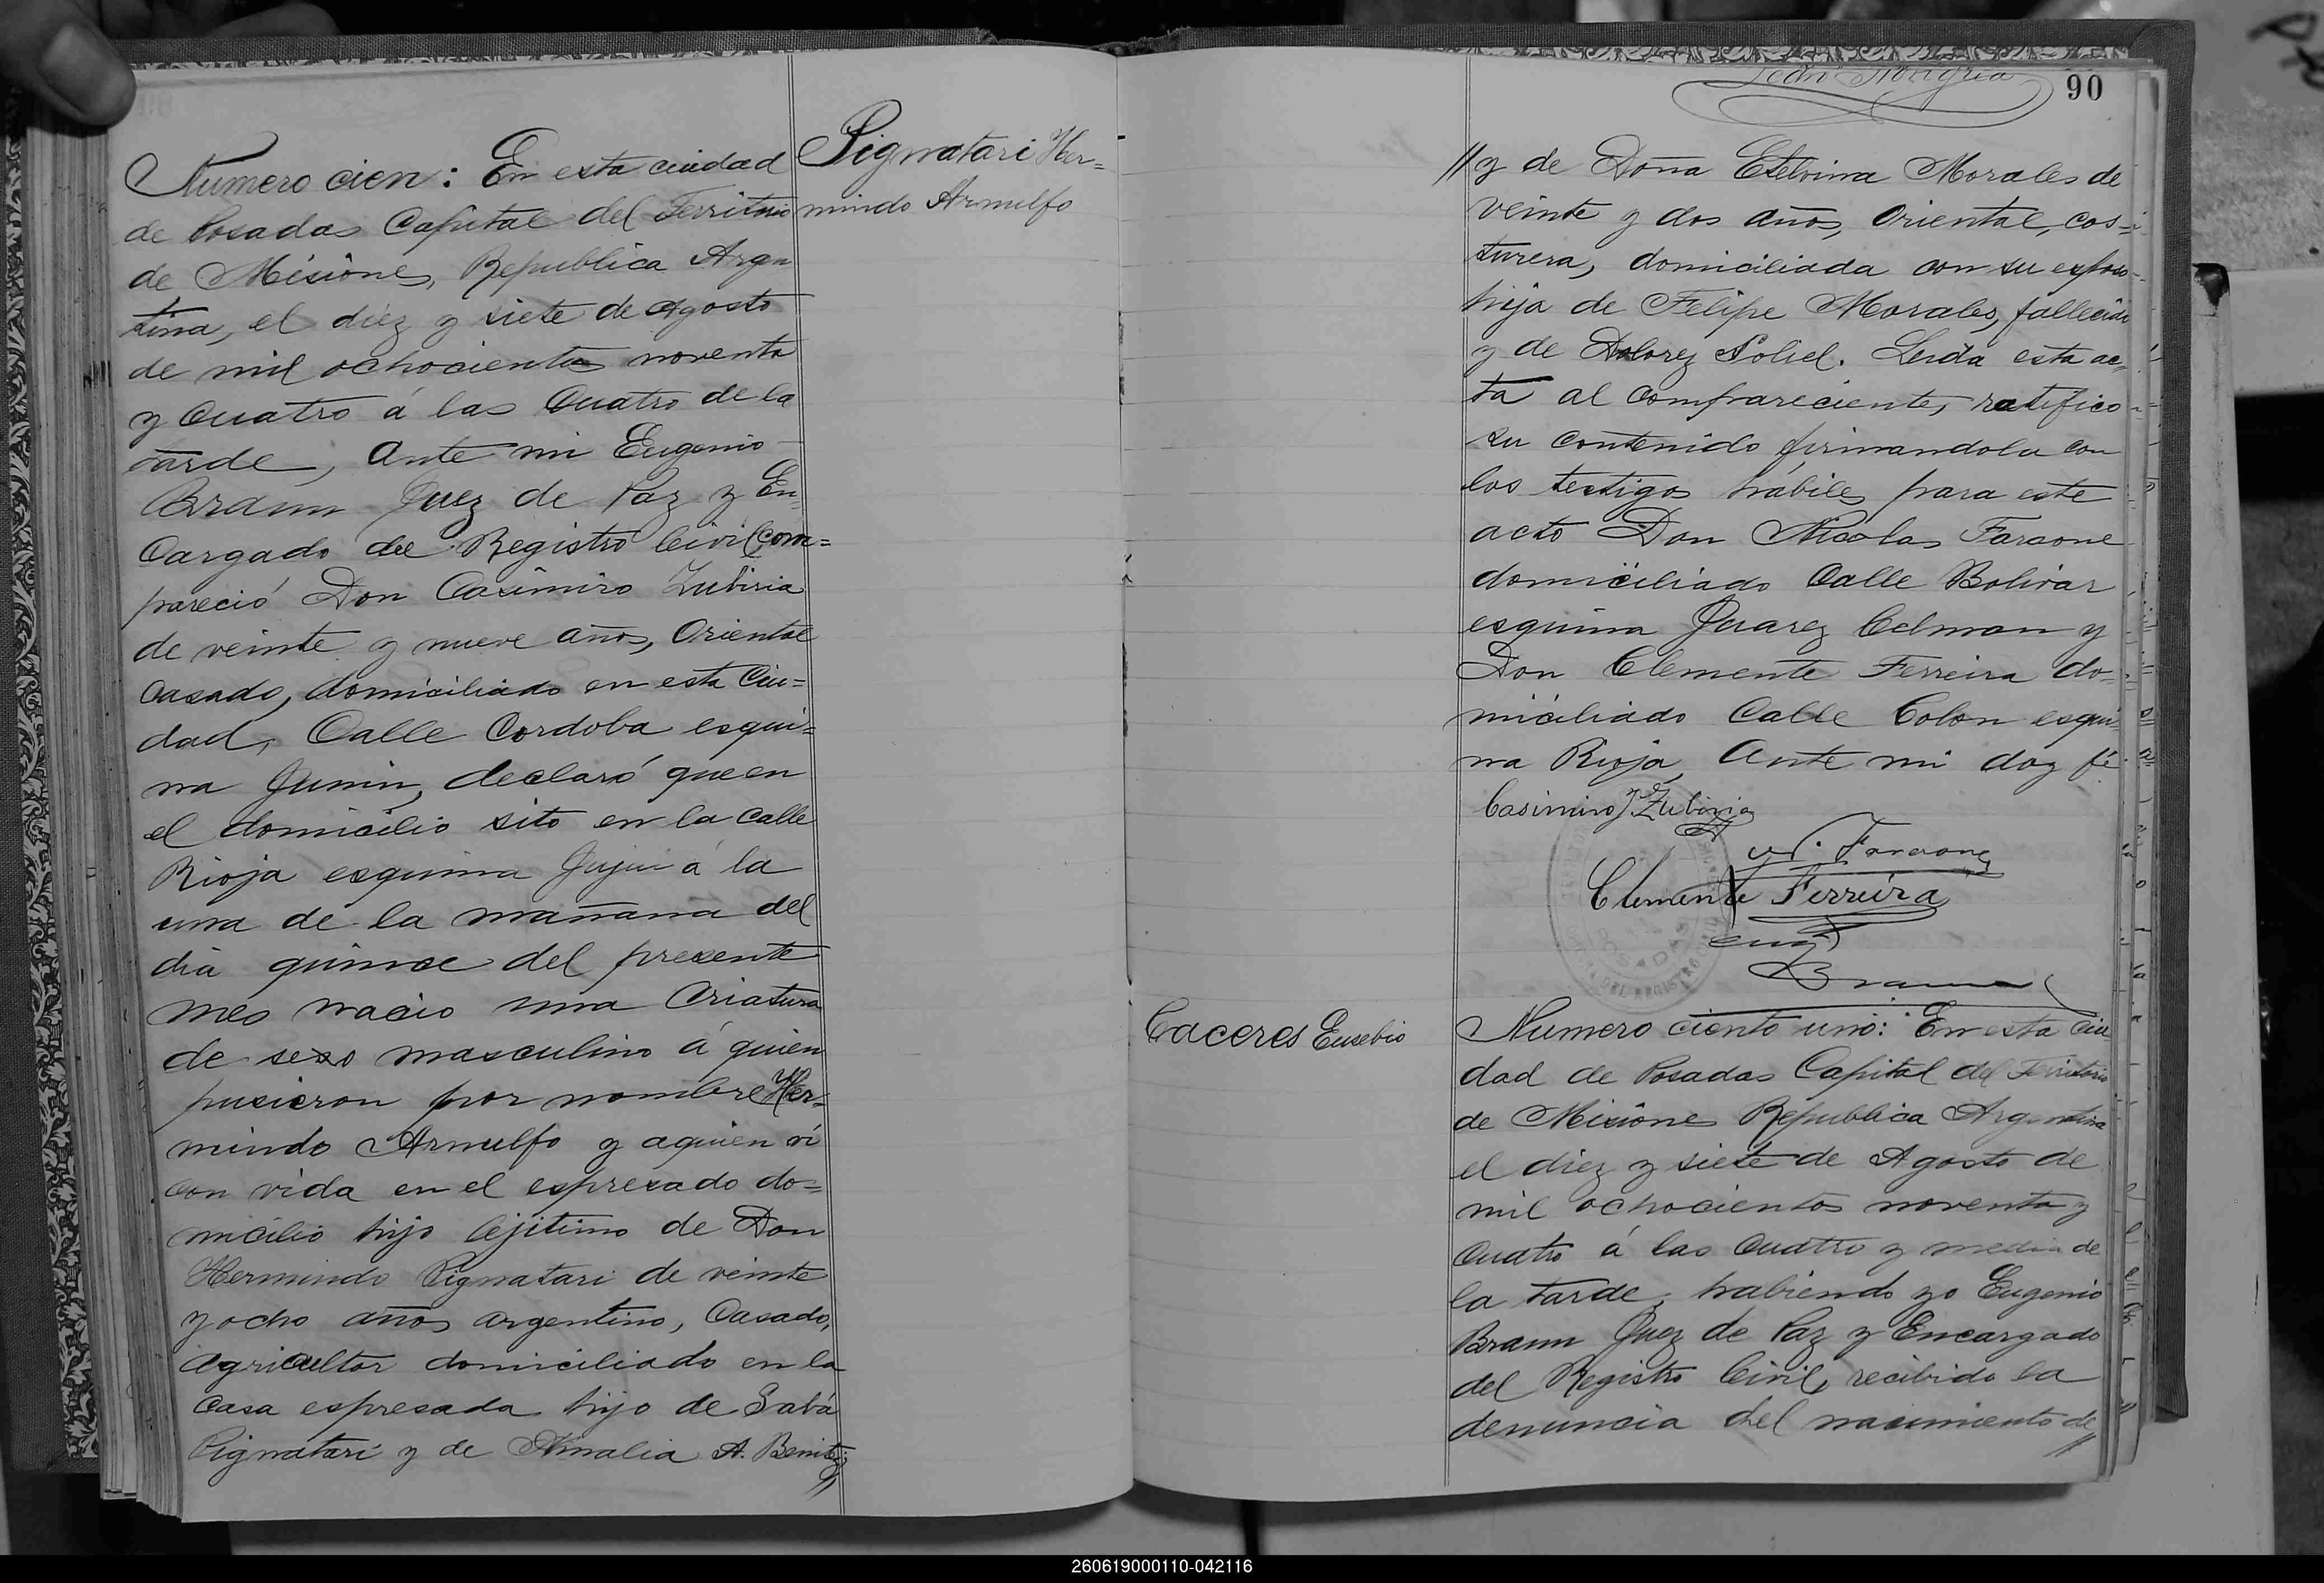 Numero cien: En esta ciudad
de Posadas Capital del Territorio
de Misiones, Republica Argen
tina, el diez y siete de Agosto
de mil ochocientos noventa
y Cuatro á las Cuatro de la
tarde, Ante mi Eugenio
Braun Juez de Paz y En
Cargado del Registro Civil, com=
pareció Don Casimiro Zubiria
de veinte y nueve años, Oriental
Casado, domiciliado en esta Ciu=
dad, Calle Cordoba esqui=
na Junin, declaró que en
el domicilio sito en la Calle
Rioja esquina Jujui á la
una de la mañana del
dia quince del presente
mes nacio una Criatura
de sexo masculino á quien
pusieron por nombre Her=
mindo Arnulfo y aquien ví
con vida en el espresado do=
micilio hijo lejitimo de Don
Hermindo Pignatari de veinte
y ocho años argentino, Casado,
Agricultor domiciliado en la
Casa espresada hijo de Sabá
Pignatari y de Amalia A. Benitez
//
Pignatari Her=
mindo Arnulfo
90
// y de Doña Etelvina Morales de
veinte y dos años, Oriental, cos=
turera, domiciliada con su esposo
hija de Felipe Morales, fallecido
y de Dolorez Soliel. Leida esta ac
ta al compareciente, ratifico
su contenido firmandola con
los testigos hábiles para este
acto Don Nicolas Faraone
domiciliado Calle Bolivar
esquina Juarez Celman y
Don Clemente Ferreira do=
miciliado Calle Colon esqui
na Rioja, Ante mi doy fé
Casimiro Zubiria
N. Faraone
Clemente Ferreira
Eug.
Braun
Caceres Eusebio
Numero ciento uno: En esta Ciu
dad de Posadas Capital del Territorio
de Misiones Republica Argentina
el diez y siete de Agosto de
mil ochocientos noventa y
Cuatro á las Cuatro y media de
la tarde, habiendo yo Eugenio
Braun Juez de Paz y Encargado
del Registro Civil, recibido la
denuncia del nacimiento de
//
260619000110-042116